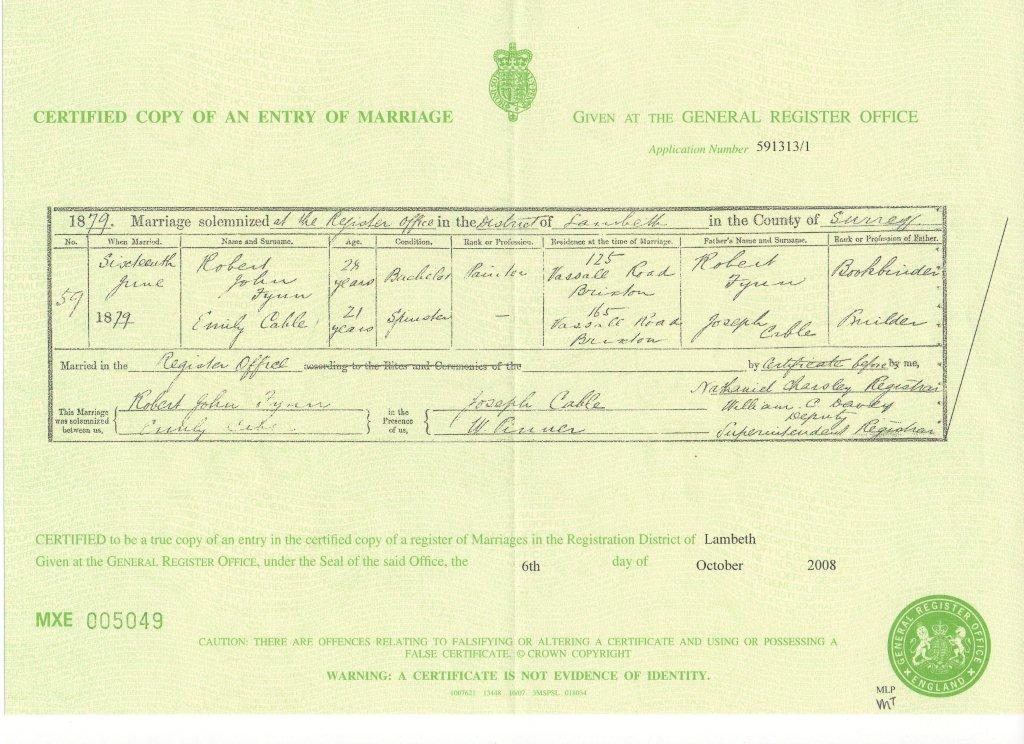 CERTIFIED COPY OF AN ENTRY OF MARRIAGE
GIVEN AT THE GENERAL REGISTER OFFICE
Application Number 591313/1
1879. Marriage solemnized at the Register Office in the District of Lambeth in the County of Surrey
No. When Married. Name and Surname. Age. Condition. Rank or Profession. Residence at the time of Marriage. Father's Name and Surname. Rank or Profession of Father.
59 Sixteenth June 1879
Robert John Fynn 28 years Bachelor Painter 125 Vassall Road Brixton Robert Fynn Bookbinder
Emily Cable 21 years Spinster — 165 Vassall Road Brixton Joseph Cable Builder
Married in the Register Office according to the Rites and Ceremonies of the by Certificate before by me,
This Marriage was solemnized between us, Robert John Fynn Emily Cable in the Presence of us, Joseph Cable W Pinner
Nathaniel Charsley Registrar
William C Davey
Deputy
Superintendent Registrar
CERTIFIED to be a true copy of an entry in the certified copy of a register of Marriages in the Registration District of Lambeth
Given at the GENERAL REGISTER OFFICE, under the Seal of the said Office, the 6th day of October 2008
MXE 005049
CAUTION: THERE ARE OFFENCES RELATING TO FALSIFYING OR ALTERING A CERTIFICATE AND USING OR POSSESSING A
FALSE CERTIFICATE. © CROWN COPYRIGHT
WARNING: A CERTIFICATE IS NOT EVIDENCE OF IDENTITY.
1007621 13448 10/07 3MSPSL 018034
GENERAL REGISTER OFFICE
ENGLAND
MLP
MT